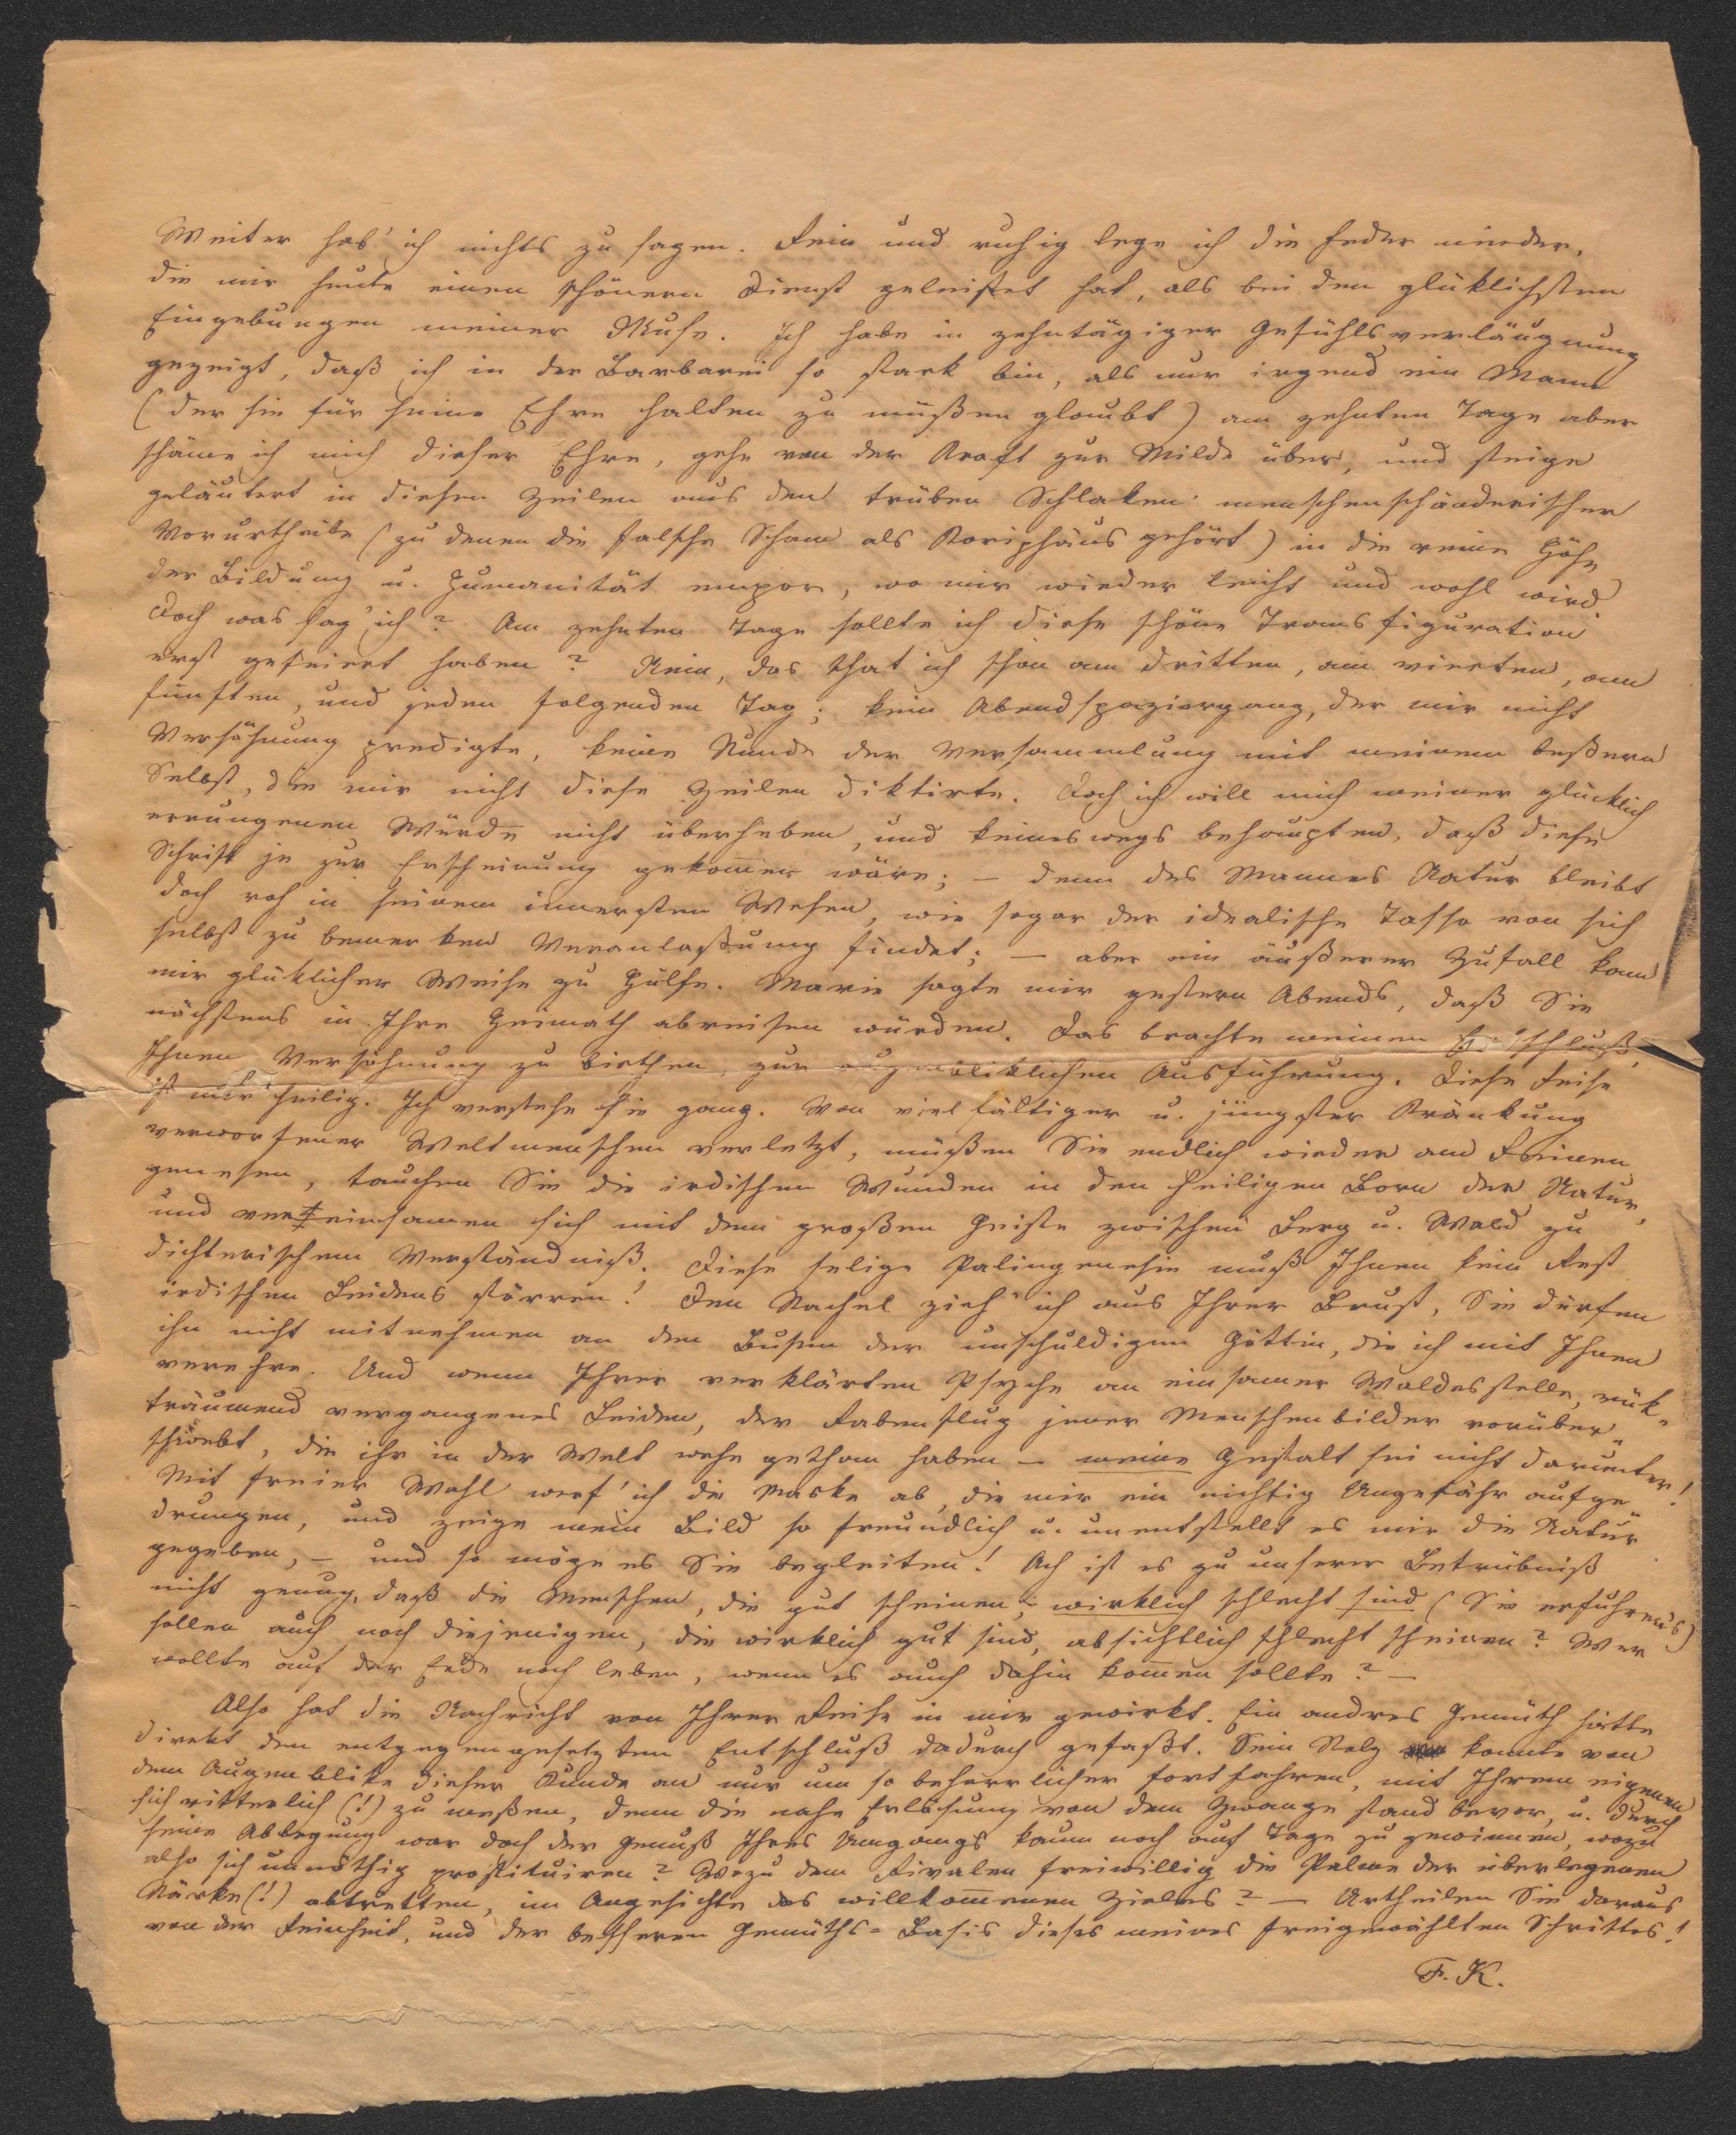 Weiter hab' ich nichts zu sagen. Rein und ruhig lege ich die Feder nieder,
die mir heute einen schönern Dienst geleistet hat, als bei den glüklichsten
Eingebungen meiner Muse. Ich habe in zehntägiger Gefühlsverläugnung
gezeigt, daß ich in der Barbarei so stark bin, als nur irgend ein Mann
(der sie für seine Ehre halten zu müßen glaubt) am zehnten Tage aber
schäme ich mich dieser Ehre, gehe von der Kraft zur Milde über, und steige
geläutert in diesen Zeilen aus den trüben Schlaken menschenschänderischer
Vorurtheile (zu denen die falsche Scham als Koriphäus gehört) in die reine Höhe
der Bildung u. Humanität empor, wo mir wieder leicht und wohl wird.
Doch was sag' ich? Am zehnten Tage sollte ich diese schöne Transfiguration
erst gefeiert haben? Nein, das that ich schon am dritten, am vierten, am
fünften, und jeden folgenden Tag; kein Abendspaziergang, der mir nicht
Versöhnung predigte, keine Stunde der Versammlung mit meinem beßern
Selbst, die mir nicht diese Zeilen diktirte. Doch ich will mich meiner glücklich
errungenen Würde nicht überheben, und keineswegs behaupten, daß diese
Schrift je zur Erscheinung gekommen wäre; – denn des Mannes Natur bleibt
doch roh in seinem innersten Wesen, wie sogar der idealische Tasso von sich
selbst zu bemerken Veranlaßung findet; – aber ein äußerer Zufall kam
mir glüklicher Weise zu Hülfe. Marie sagte mir gestern Abends, daß Sie
nächstens in Ihre Heimath abreisen würden. Das brachte meinen Entschluß,
Ihnen Versöhnung zu biethen, zur augenbliklichen Ausführung. Diese Reise
ist mir heilig. Ich verstehe sie ganz. Von vielfältiger u. jüngster Kränkung
verworfener Weltmenschen verletzt, müßen Sie endlich wieder am Reinen
genesen, tauchen Sie die irdischen Wunden in den heiligen Born der Natur,
und vereinsamen sich mit dem großen Geiste zwischen Berg u. Wald zu
dichterischem Verständniß. Diese selige Palingenesie muß Ihnen kein Rest
irdischen Leidens störren! Den Stachel zieh' ich aus Ihrer Brust, Sie dürfen
ihn nicht mitnehmen an den Busen der unschuldigen Göttin, die ich mit Ihnen
verehre. Und wenn Ihrer verklärten Psyche an einsamer Waldesstelle, rük-
träumend vergangenes Leiden, der Rabenflug jener Menschenbilder vorüber-
schwebt, die ihr in der Welt wehe gethan haben – meine Gestalt sei nicht darunter!
Mit freier Wahl werf' ich die Maske ab, die mir ein nichtig Ungefähr aufge-
drungen, und zeige mein Bild so freundlich u. unentstellt es mir die Natur
gegeben, – und so möge es Sie begleiten! Ach ist es zu unserer Betrübniß
nicht genug, daß die Menschen, die gut scheinen, wirklich schlecht sind (Sie erfuhren's)
sollen auch noch diejenigen, die wirklich gut sind, absichtlich schlecht scheinen? Wer
wollte auf der Erde noch leben, wenn es auch dahin kommen sollte? –
Also hat die Nachricht von Ihrer Reise in mir gewirkt. Ein andres Gemüth hätte
direkt den entgegengesetzten Entschluß dadurch gefaßt. Sein Stolz konnte von
dem Augenblike dieser Kunde an nur um so beharrlicher fortfahren, mit Ihrem eigenen
sich ritterlich (!) zu meßen, denn die nahe Erlösung von dem Zwange stand bevor, u. durch
seine Ablegung war doch der Genuß Ihres Umgangs kaum noch auf Tage zu gewinnen, wozu
also sich unnöthig prostituiren? Wozu dem Rivalen freiwillig die Palme der überlegenen
Stärke(!) abtretten, im Angesichte des willkommenen Zieles? – Urtheilen Sie daraus
von der Reinheit, und der besseren Gemüths-Basis dieses meines freigewählten Schrittes!
F. K.